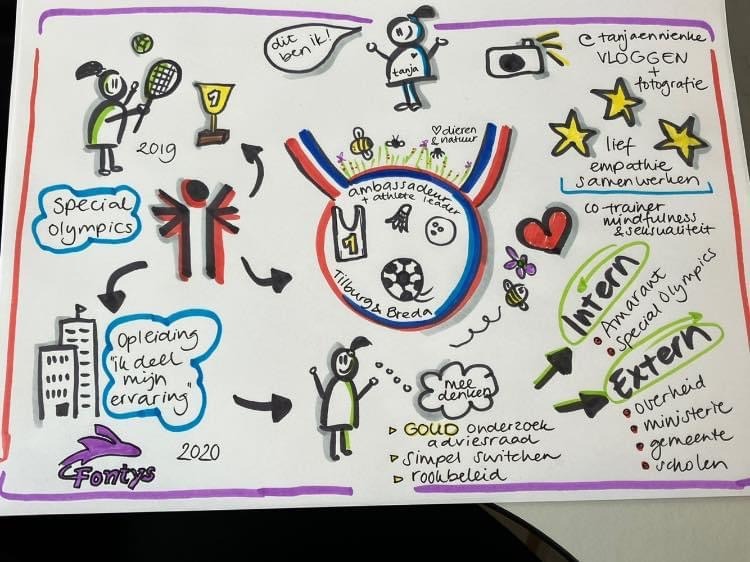 dit
ben ik!
tanja
@tanjaennienke
VLOGGEN
+
fotografie
1
2019
♡dieren
& natuur
lief
empathie
samenwerken
special
olympics
ambassadeur
+ athlete leader
1
Tilburg & Breda
co-trainer
mindfulness
& seksualiteit
Intern
Amarant
Special Olympics
Extern
overheid
ministerie
gemeente
scholen
Opleiding
"ik deel
mijn
ervaring"
mee
denken
GOUD onderzoek
adviesraad
simpel switchen
rookbeleid
Fontys
2020